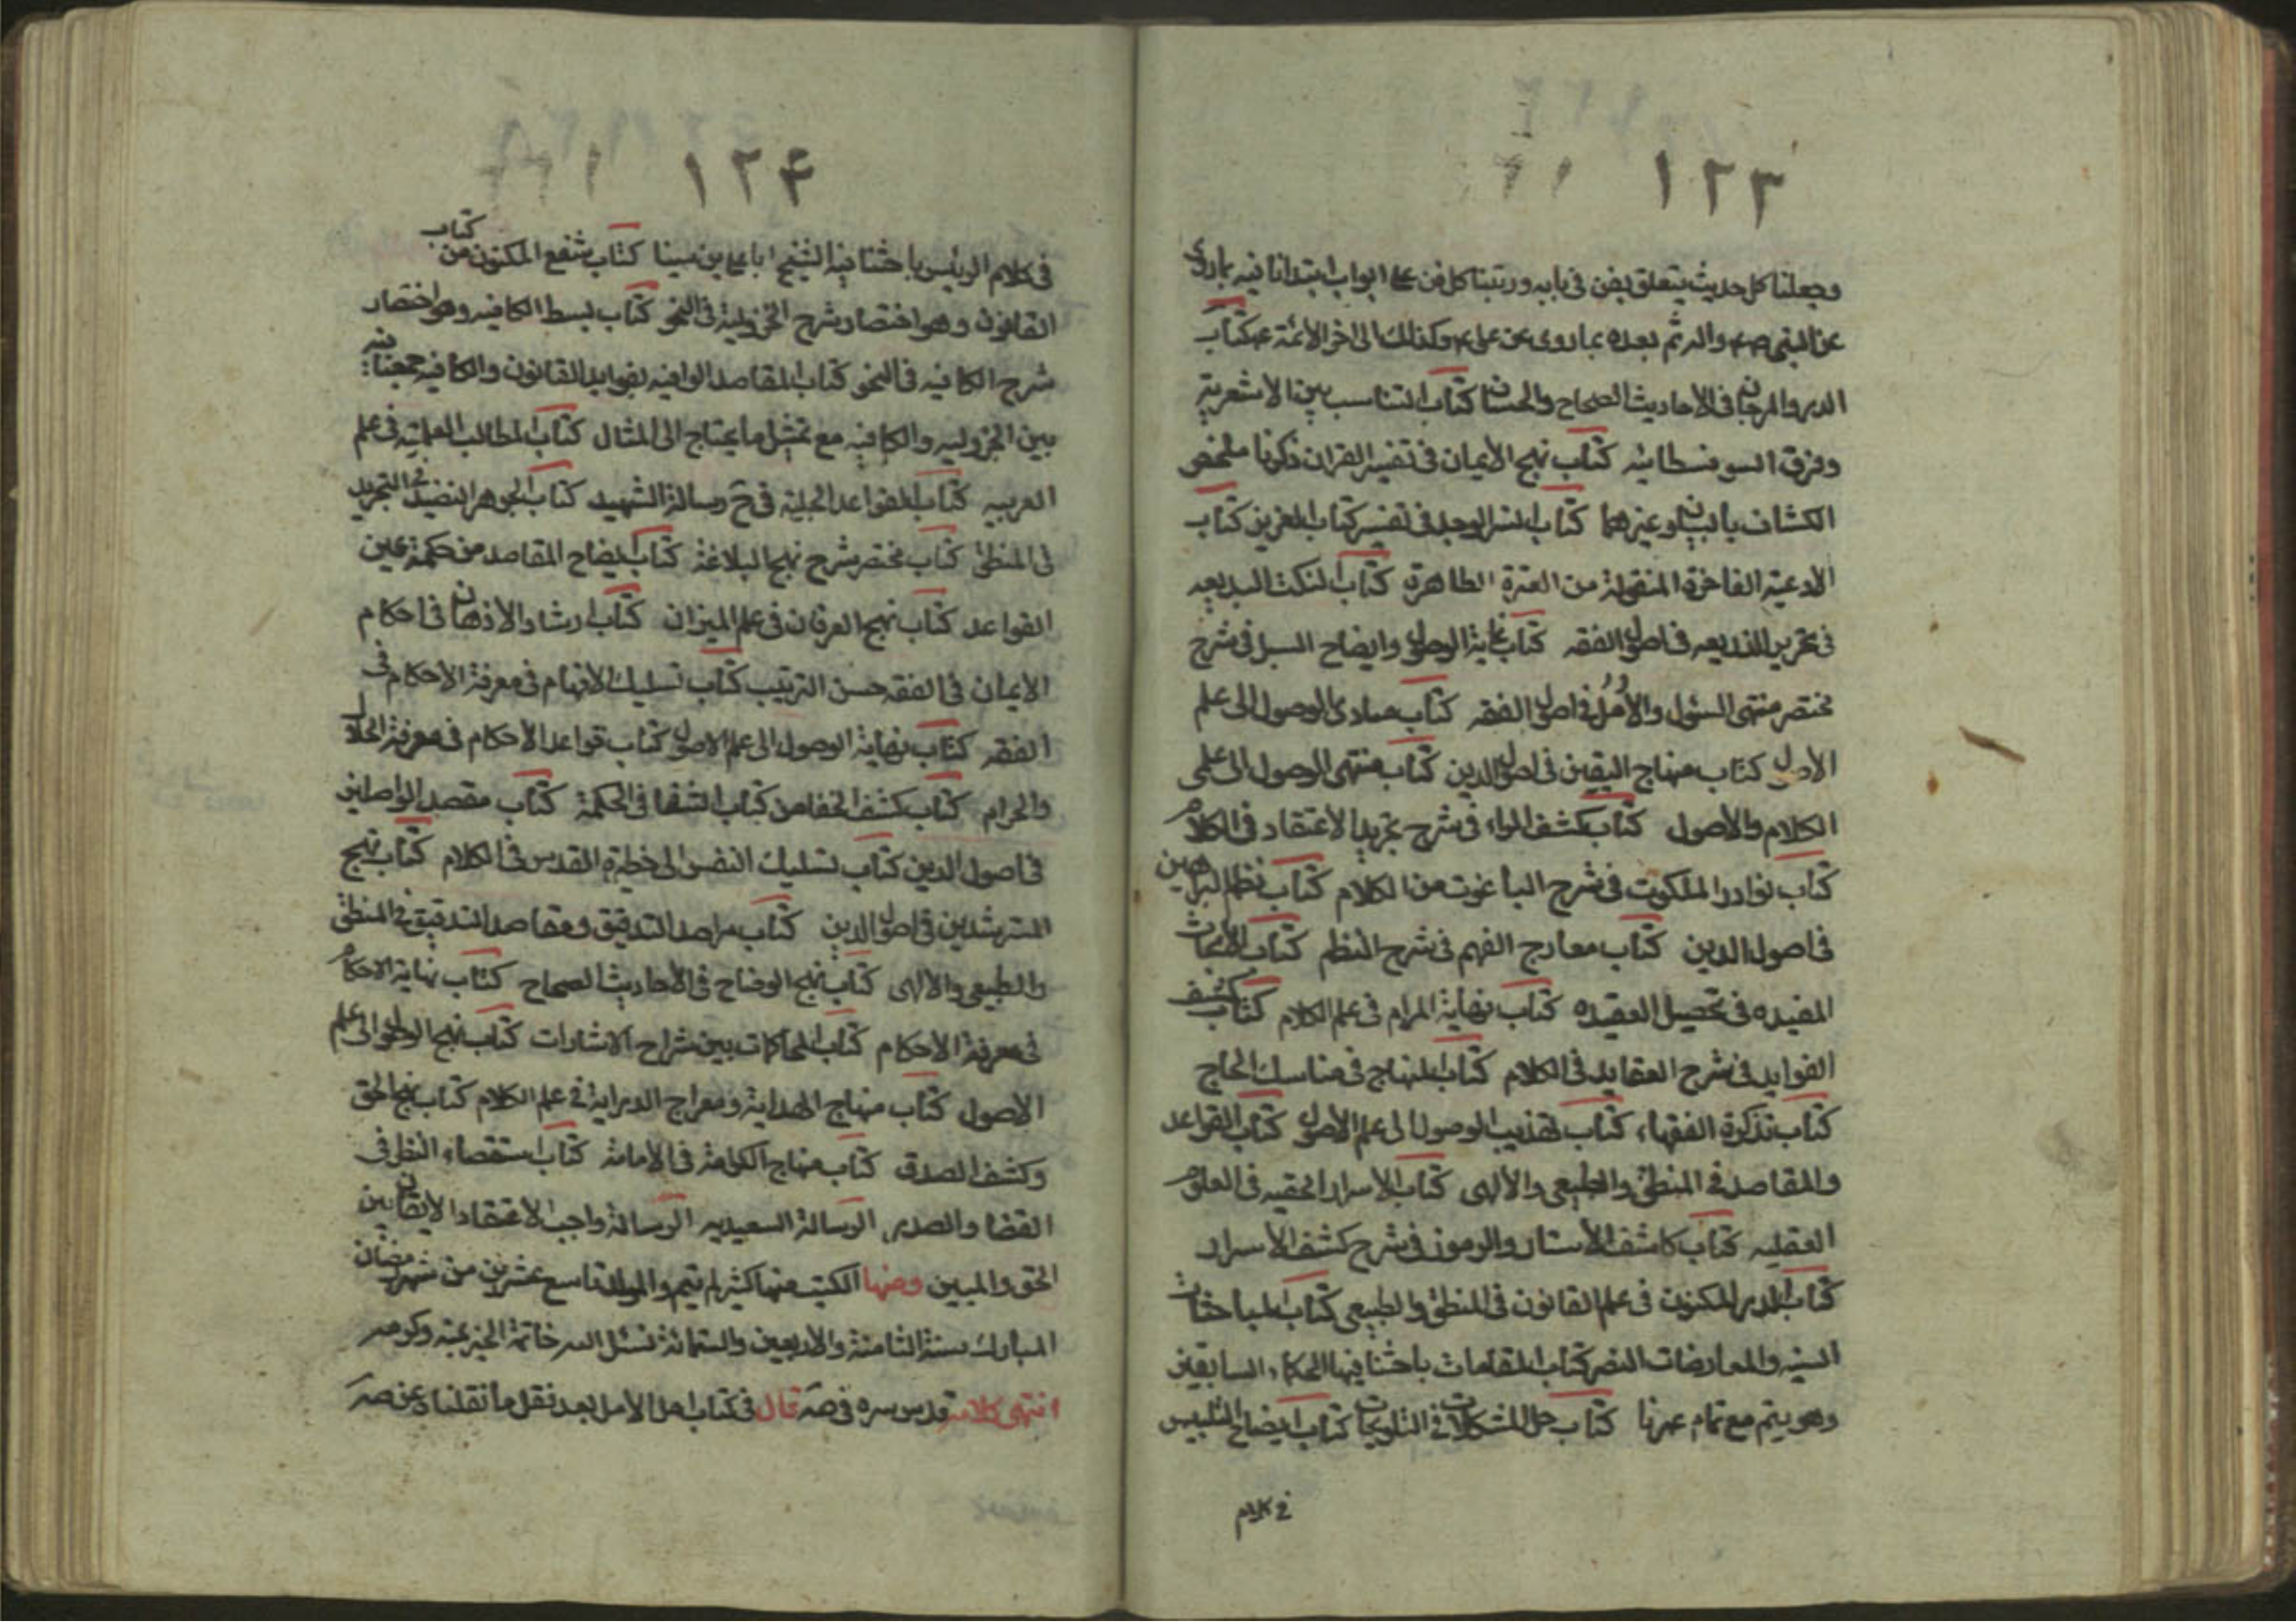 ١٢٣
وجعلنا كل حديث يتعلق بفن في بابه ورتبنا كل فن على ابواب ابتدانا فيه بما روى
عن النبي ص وآله ثم بعده بما روى عن علي ع وكذلك الى اخر الائمة ع كتاب
الدر والمرجان في الاحاديث الصحاح والحسان كتاب التناسب بين الاشعرية
وفرق السوفسطائيه كتاب نهج الايمان في تفسير القران ذكرنا ملخص
الكشاف والتبيان وغيرهما كتاب السر الوجيز في تفسير كتاب العزيز كتاب
الادعية الفاخرة المنقولة من العترة الطاهرة كتاب النكت البديعه
في تحرير الذريعه في اصول الفقه كتاب غاية الوصول وايضاح السبل في شرح
مختصر منتهى السئول والامل في اصول الفقه كتاب مبادى الوصول الى علم
الاصول كتاب منهاج اليقين في اصول الدين كتاب منتهى الوصول الى علمي
الكلام والاصول كتاب كشف المراد في شرح تجريد الاعتقاد في الكلام
كتاب نوادر الملكوت في شرح الياغوت من الكلام كتاب نظم البراهين
في اصول الدين كتاب معارج الفهم في شرح النظم كتاب الابحاث
المفيده في تحصيل العقيده كتاب نهاية المرام في علم الكلام كتاب كشف
الفوايد في شرح العقايد في الكلام كتاب المنهاج في مناسك الحاج
كتاب تذكرة الفقهاء كتاب تهذيب الوصول الى علم الاصول كتاب القواعد
والمقاصد في المنطق والطبيعي والالهى كتاب الاسرار الخفيه في العلوم
العقليه كتاب كاشف الاستار والرموز في شرح كشف الاسرار
كتاب الدر المكنون في علم القانون في المنطق والطبيعي كتاب المباحثات
السنيه والمعارضات النصيريه كتاب المقاومات باحثنا فيها الحكماء السابقين
وهو يتم مع تمام عمرنا كتاب حل المشكلات في التلويحات كتاب ايضاح التلبيس
في كلام
١٢۴
في كلام الرئيس باحثنا فيه الشيخ ابا علي بن سينا كتاب شفع المكنون من كتاب
القانون وهو اختصار شرح الجزولية في النحو كتاب بسط الكافيه وهو اختصار
شرح الكافيه في النحو كتاب المقاصد الوافيه بفوايد القانون والكافيه جمعنا فيه
بين الجزوليه والكافيه مع تمثيل ما يحتاج الى المثال كتاب المطالب العلية في علم
العربيه كتاب القواعد الجلية في ح رسالة الشهيد كتاب الجوهر النضيد في ح التجريد
في المنطق كتاب مختصر شرح نهج البلاغة كتاب ايضاح المقاصد من حكمة عين
القواعد كتاب نهج العرفان في علم الميزان كتاب ارشاد الاذهان في احكام
الايمان في الفقه حسن الترتيب كتاب تسليك الافهام في معرفة الاحكام في
الفقه كتاب نهاية الوصول الى علم الاصول كتاب قواعد الاحكام في معرفة الحلال
والحرام كتاب كشف الخفا من كتاب الشفا في الحكمة كتاب مقصد الواصلين
في اصول الدين كتاب تسليك النفس الى خطيرة القدس في الكلام كتاب نهج
المسترشدين في اصول الدين كتاب مراصد التدقيق ومقاصد التدقيق في المنطق
والطبيعي والالهى كتاب نهج الوضاح في الاحاديث الصحاح كتاب نهاية الاحكام
في معرفة الاحكام كتاب المحاكات بين شراح الاشارات كتاب نهج الوصول الى علم
الاصول كتاب منهاج الهداية ومعراج الدراية في علم الكلام كتاب نهج الحق
وكشف الصدق كتاب منهاج الكرامة في الامامة كتاب استقصاء النظر في
القضا والقدر الرسالة السعيديه الرسالة واجب الاعتقاد الايقان بين
الحق والمبين ومنها الكتب منها كثير لم يتم والمولد تاسع عشرين من شهر رمضان
المبارك سنة الثامنة والاربعين والستمائة نسئل الله خاتمة الخير بمنه وكرمه
انتهى كلامه قدس سره في صه قال في كتاب امل الامل بعد نقل ما نقلناه عن صه